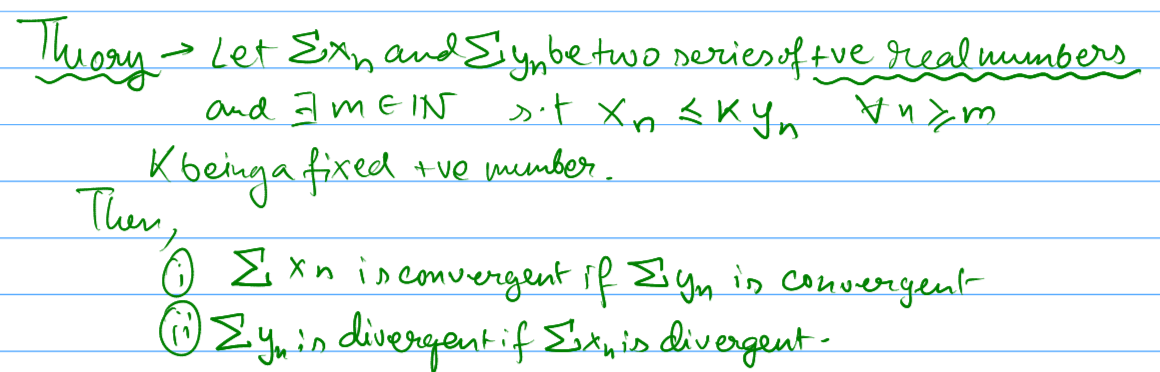 Theory → Let Σxₙ and Σyₙ be two series of +ve real numbers
and ∃ m ∈ ℕ s.t xₙ ≤ K yₙ ∀ n ≥ m
K being a fixed +ve number.
Then,
(i) Σ xₙ is convergent if Σ yₙ is convergent
(ii) Σ yₙ is divergent if Σxₙ is divergent.